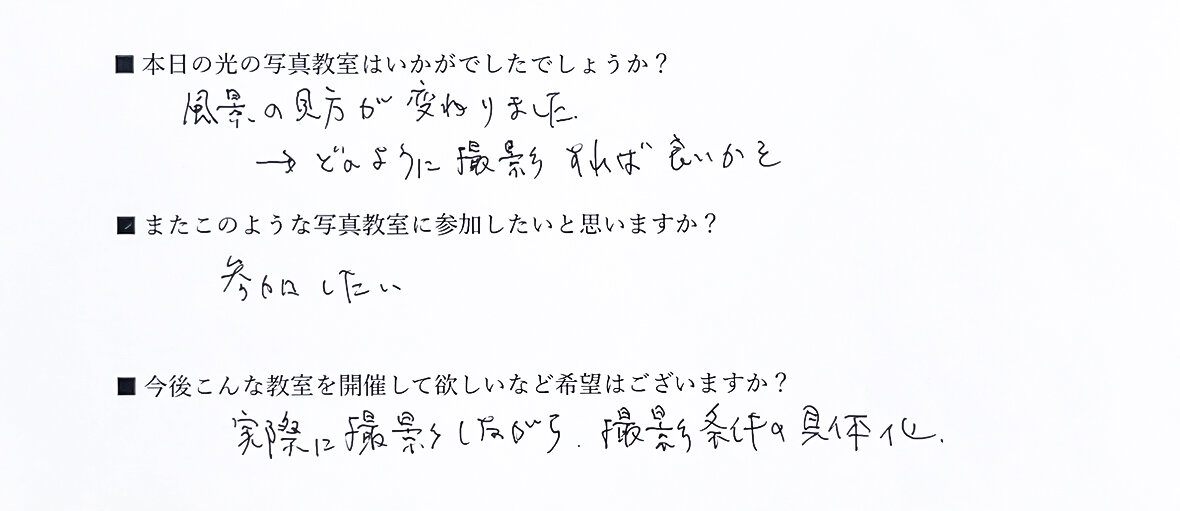 ■ 本日の光の写真教室はいかがでしたでしょうか？
風景の見方が変わりました.
→ どのように撮影すれば良いかを
■ またこのような写真教室に参加したいと思いますか？
参加したい
■ 今後こんな教室を開催して欲しいなど希望はございますか？
実際に撮影しながら. 撮影条件の具体化.